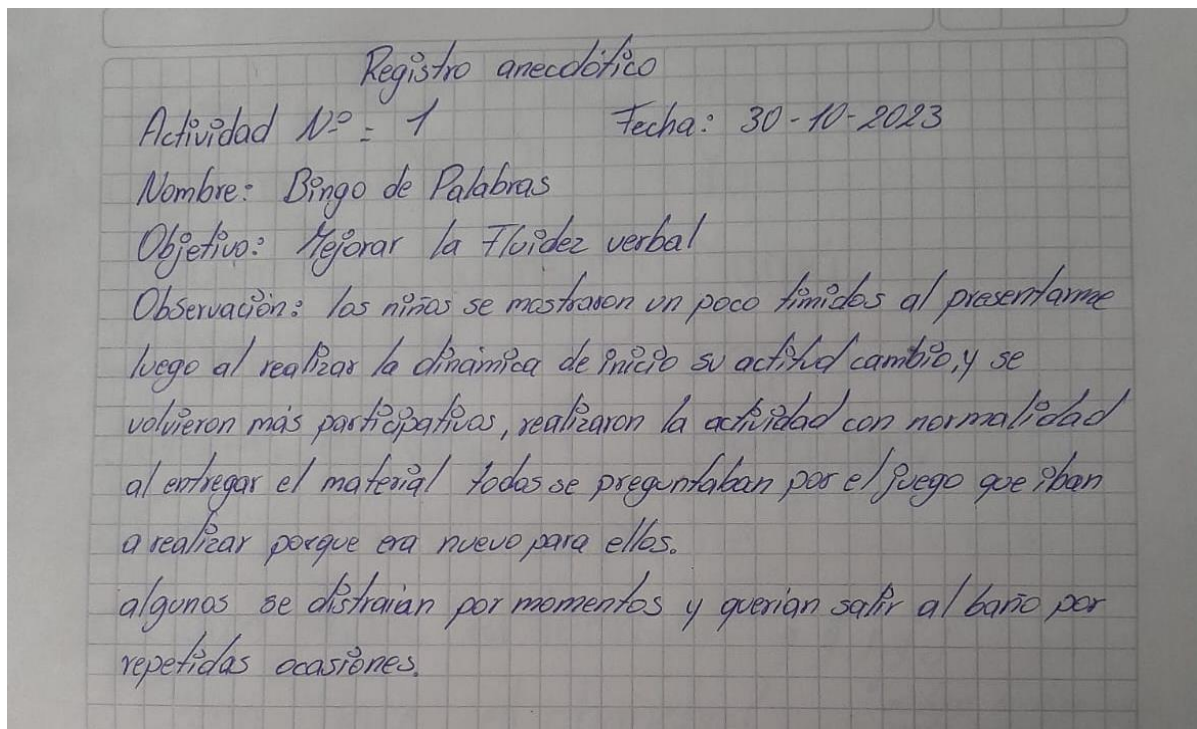 Registro anecdótico
Actividad Nº = 1 Fecha: 30-10-2023
Nombre: Bingo de Palabras
Objetivo: Mejorar la Fluidez verbal
Observación: los niños se mostraron un poco timidos al presentarme
luego al realizar la dinámica de inicio su actitud cambio, y se
volvieron más participativos, realizaron la actividad con normalidad
al entregar el material todos se preguntaban por el juego que iban
a realizar porque era nuevo para ellos.
algunos se distraian por momentos y querian salir al baño por
repetidas ocasiones.